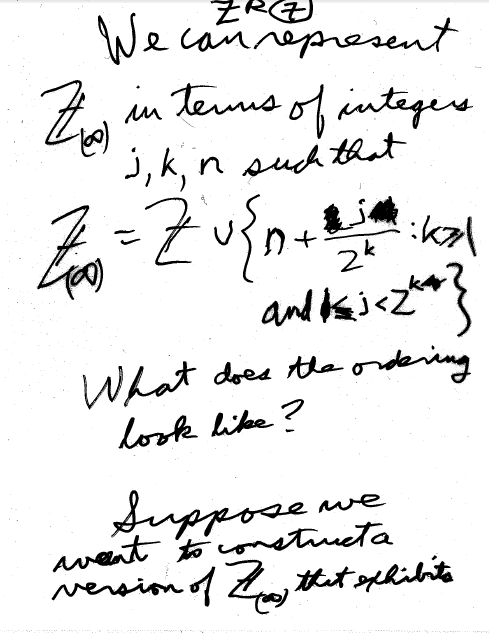 We can represent
ℤ(∞) in terms of integers
j, k, n such that
ℤ(∞) = ℤ ∪ { n + j/2^k : k ≥ 1
and 1 ≤ j < 2^k }
What does the ordering
look like?
Suppose we
want to construct a
version of ℤ(∞) that exhibits